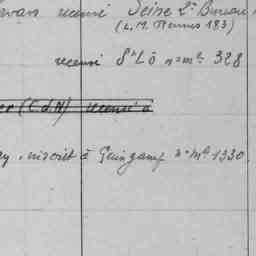 recensé Seine 2e Bureau
(L.M. Rennes 183)
recensé St Lô n° mle 328
(C d N) recensé à
inscrit à Guingamp n° mle 1330